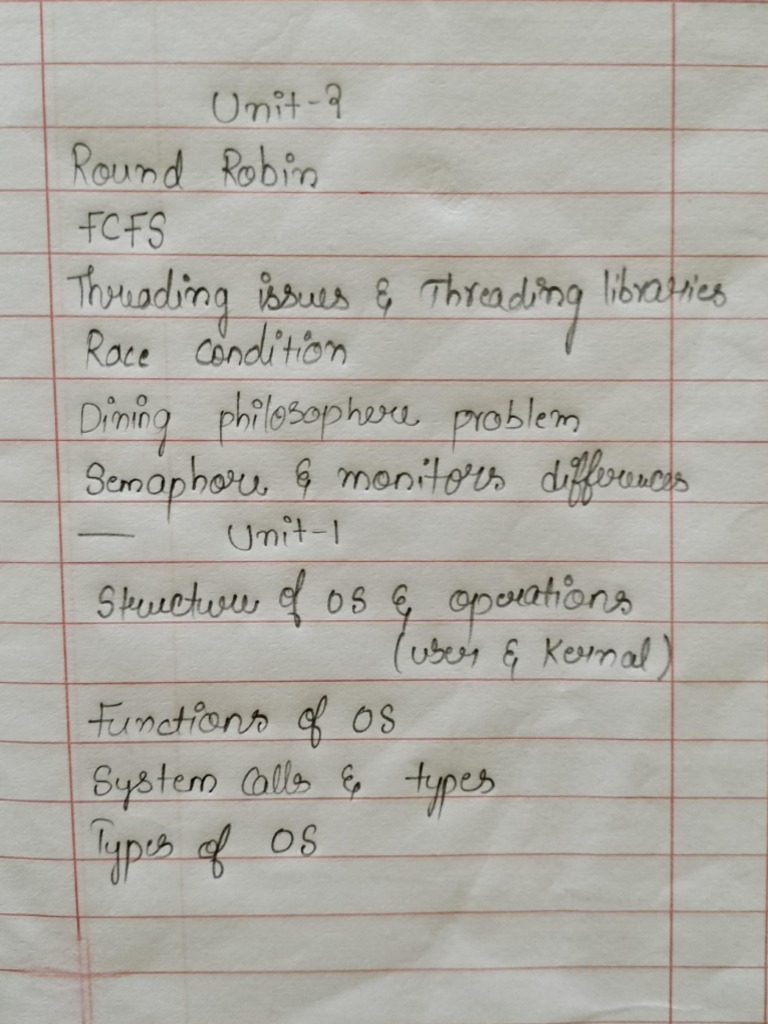 Unit-2
Round Robin
FCFS
Threading issues & Threading libraries
Race condition
Dining philosophere problem
Semaphore & monitors differences
— Unit-1
Structure of OS & operations
(user & Kernal)
Functions of OS
System Calls & types
Types of OS